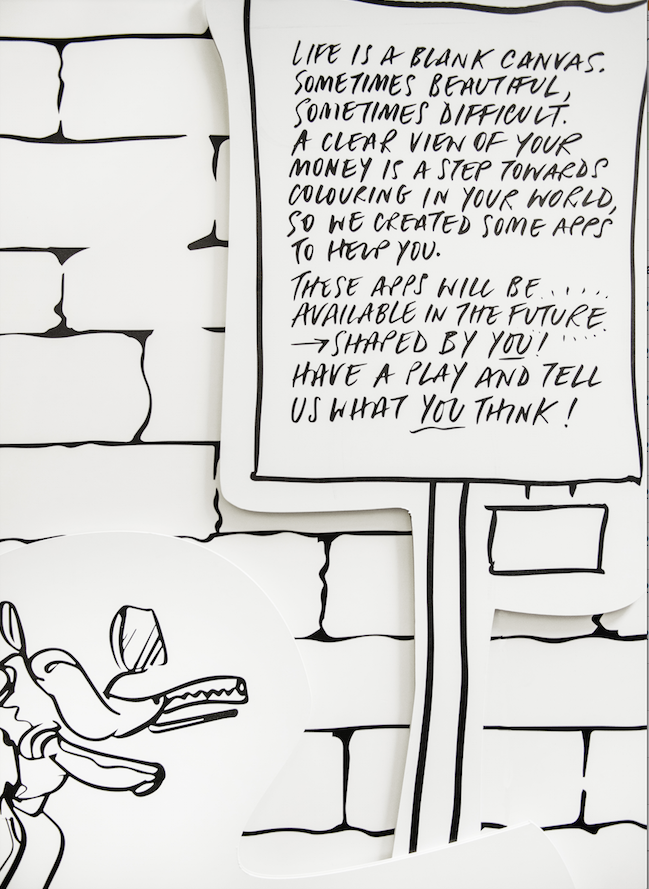 LIFE IS A BLANK CANVAS.
SOMETIMES BEAUTIFUL,
SOMETIMES DIFFICULT.
A CLEAR VIEW OF YOUR
MONEY IS A STEP TOWARDS
COLOURING IN YOUR WORLD,
SO WE CREATED SOME APPS
TO HELP YOU.
THESE APPS WILL BE.....
AVAILABLE IN THE FUTURE
→SHAPED BY YOU! ....
HAVE A PLAY AND TELL
US WHAT YOU THINK!